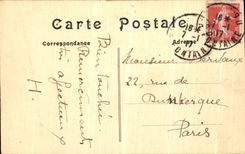 Carte Postale
Correspondance
Adresse
Bien touchée
Remerciements
affectueux
H.
Monsieur
22, rue de
Dunkerque
Paris